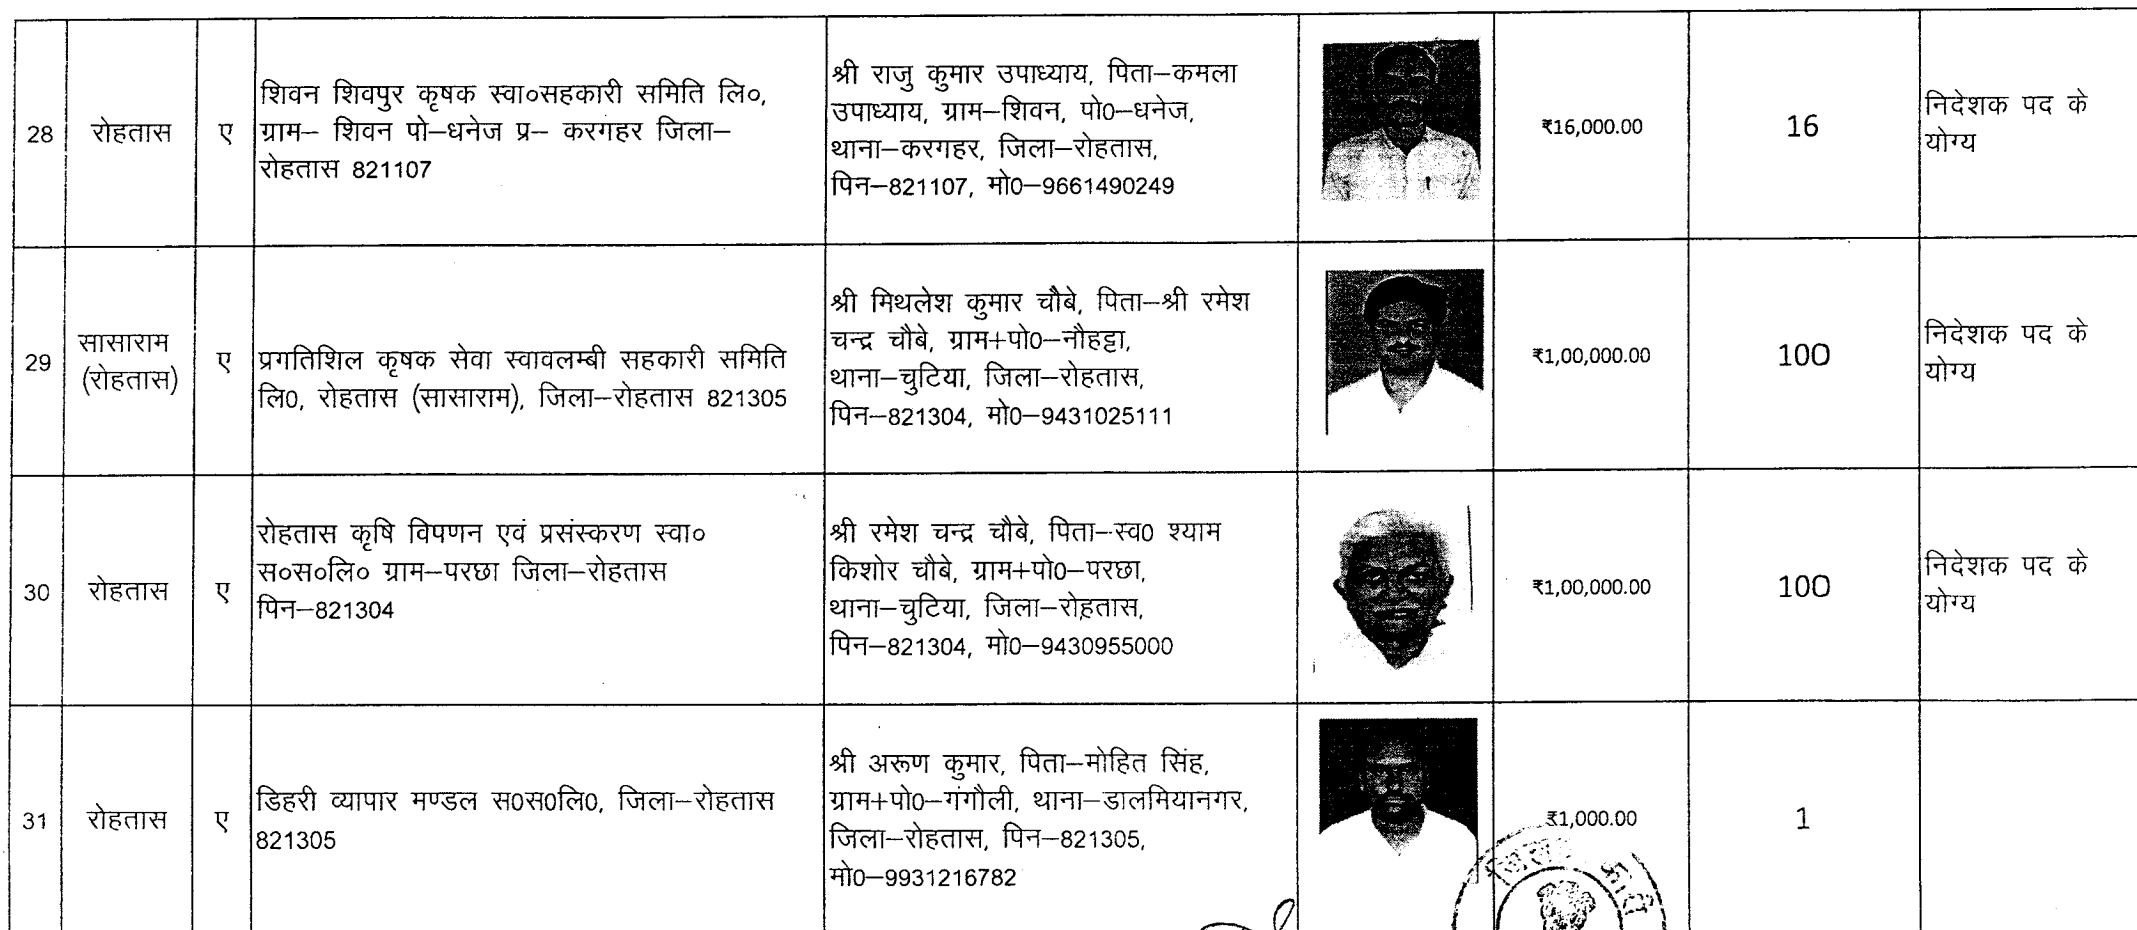 28
रोहतास
ए
शिवन शिवपुर कृषक स्वा०सहकारी समिति लि०,
ग्राम– शिवन पो–धनेज प्र– करगहर जिला–
रोहतास 821107
श्री राजु कुमार उपाध्याय, पिता–कमला
उपाध्याय, ग्राम–शिवन, पो0–धनेज,
थाना–करगहर, जिला–रोहतास,
पिन–821107, मो0–9661490249
₹16,000.00
16
निदेशक पद के
योग्य
29
सासाराम
(रोहतास)
ए
प्रगतिशिल कृषक सेवा स्वावलम्बी सहकारी समिति
लि0, रोहतास (सासाराम), जिला–रोहतास 821305
श्री मिथलेश कुमार चौबे, पिता–श्री रमेश
चन्द्र चौबे, ग्राम+पो0–नौहट्टा,
थाना–चुटिया, जिला–रोहतास,
पिन–821304, मो0–9431025111
₹1,00,000.00
100
निदेशक पद के
योग्य
30
रोहतास
ए
रोहतास कृषि विपणन एवं प्रसंस्करण स्वा०
स०स०लि० ग्राम–परछा जिला–रोहतास
पिन–821304
श्री रमेश चन्द्र चौबे, पिता–स्व0 श्याम
किशोर चौबे, ग्राम+पो0–परछा,
थाना–चुटिया, जिला–रोहतास,
पिन–821304, मो0–9430955000
₹1,00,000.00
100
निदेशक पद के
योग्य
31
रोहतास
ए
डिहरी व्यापार मण्डल स0स0लि0, जिला–रोहतास
821305
श्री अरूण कुमार, पिता–मोहित सिंह,
ग्राम+पो0–गंगौली, थाना–डालमियानगर,
जिला–रोहतास, पिन–821305,
मो0–9931216782
₹1,000.00
1